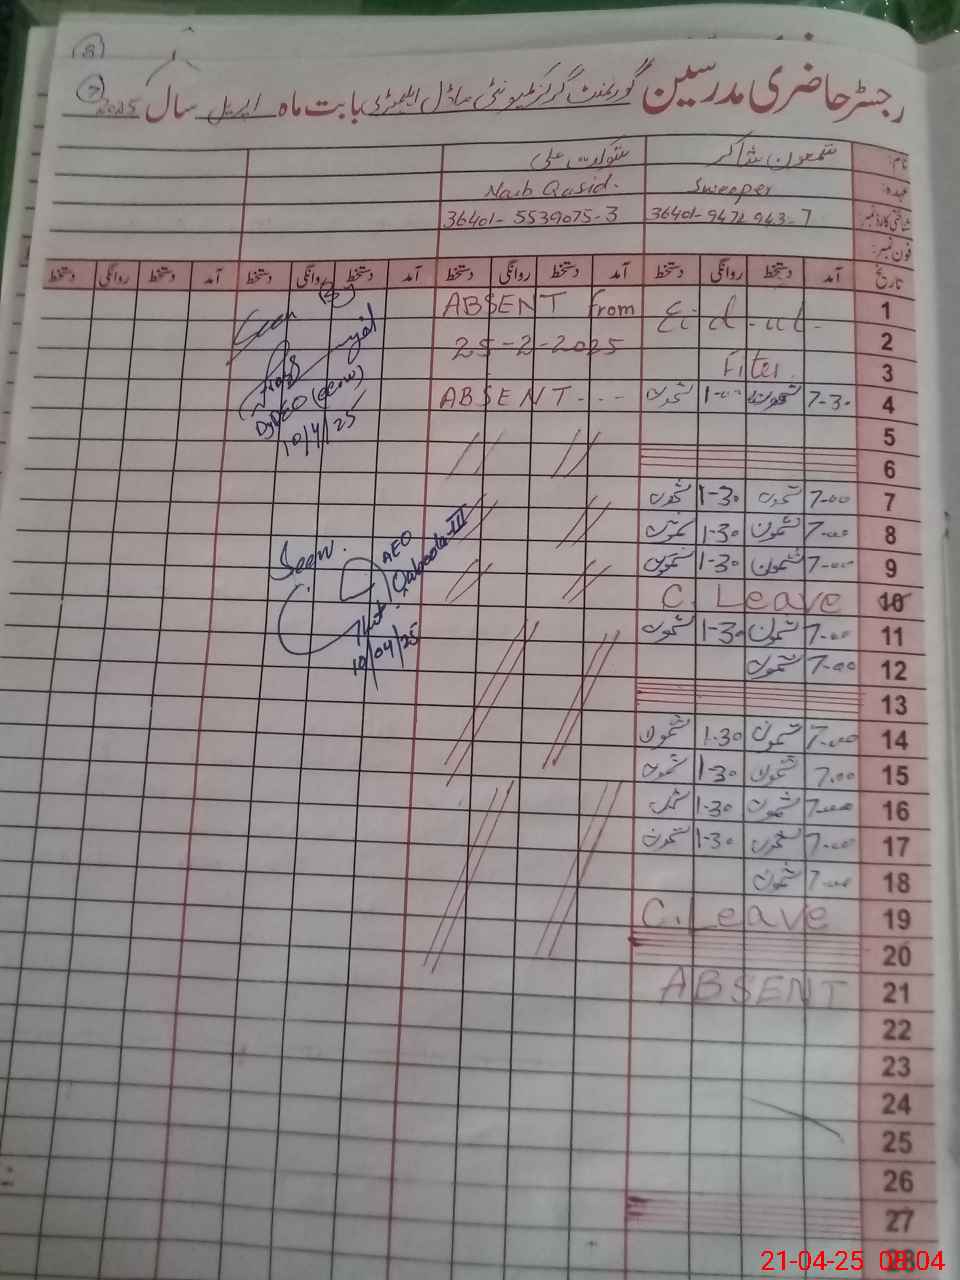 رجسٹر حاضری مدرسین گورنمنٹ گرلز کمیونٹی ماڈل ایلیمنٹری بابت ماہ اپریل سال 2025
نام: شمعون شاکر شوکت علی
عہدہ: Sweeper Naib Qasid.
شناختی کارڈ نمبر: 36401-9472943-7 36401-5539075-3
فون نمبر:
تاریخ آمد دستخط روانگی دستخط آمد دستخط روانگی دستخط آمد دستخط روانگی دستخط آمد دستخط روانگی دستخط
1 Eid-ul- ABSENT from
2 25-2-2025
3 Fiter
4 7-30 شمعون 1-00 شمعون ABSENT---
5
6
7 7-00 شمعون 1-30 شمعون
8 7-00 شمعون 1-30 شمعون
9 7-00 شمعون 1-30 شمعون
10 C. Leave
11 7-00 شمعون 1-30 شمعون
12 7-00 شمعون
13
14 7-00 شمعون 1-30 شمعون
15 7.00 شمعون 1-30 شمعون
16 7-00 شمعون 1-30 شمعون
17 7-00 شمعون 1-30 شمعون
18 7-00 شمعون
19 C. Leave
20
21 ABSENT
22
23
24
25
26
27
28
Seen
DyDEO
10/4/25
Seen.
AEO
10/04/25
21-04-25 08:04